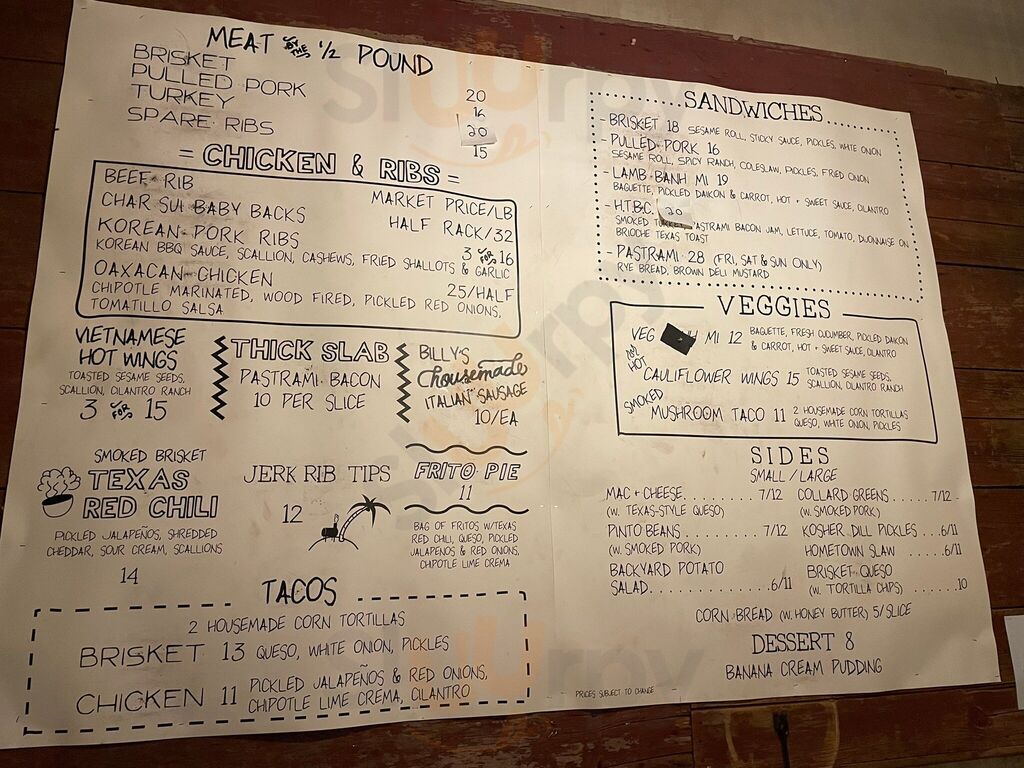 MEAT BY THE 1/2 POUND
BRISKET 20
PULLED PORK 16
TURKEY 20
SPARE RIBS 15
= CHICKEN & RIBS =
BEEF RIB MARKET PRICE/LB
CHAR SUI BABY BACKS HALF RACK/32
KOREAN PORK RIBS 3 FOR 16
KOREAN BBQ SAUCE, SCALLION, CASHEWS, FRIED SHALLOTS & GARLIC
OAXACAN CHICKEN 25/HALF
CHIPOTLE MARINATED, WOOD FIRED, PICKLED RED ONIONS,
TOMATILLO SALSA
VIETNAMESE
HOT WINGS
TOASTED SESAME SEEDS,
SCALLION, CILANTRO RANCH
3 FOR 15
THICK SLAB
PASTRAMI BACON
10 PER SLICE
BILLY'S
Chousemade
ITALIAN SAUSAGE
10/EA
SMOKED BRISKET
TEXAS
RED CHILI
PICKLED JALAPEÑOS, SHREDDED
CHEDDAR, SOUR CREAM, SCALLIONS
14
JERK RIB TIPS
12
FRITO PIE
11
BAG OF FRITOS W/TEXAS
RED CHILI, QUESO, PICKLED
JALAPEÑOS & RED ONIONS,
CHIPOTLE LIME CREMA
TACOS
2 HOUSEMADE CORN TORTILLAS
BRISKET 13 QUESO, WHITE ONION, PICKLES
CHICKEN 11 PICKLED JALAPEÑOS & RED ONIONS,
CHIPOTLE LIME CREMA, CILANTRO
SANDWICHES
- BRISKET 18 SESAME ROLL, STICKY SAUCE, PICKLES, WHITE ONION
- PULLED PORK 16
SESAME ROLL, SPICY RANCH, COLESLAW, PICKLES, FRIED ONION
- LAMB BANH MI 19
BAGUETTE, PICKLED DAIKON & CARROT, HOT + SWEET SAUCE, CILANTRO
- H.T.B.C. 20
SMOKED PASTRAMI BACON JAM, LETTUCE, TOMATO, DIJONNAISE ON
BRIOCHE TEXAS TOAST
- PASTRAMI 28 (FRI, SAT & SUN ONLY)
RYE BREAD, BROWN DELI MUSTARD
VEGGIES
VEG NH MI 12 BAGUETTE, FRESH CUCUMBER, PICKLED DAIKON
& CARROT, HOT + SWEET SAUCE, CILANTRO
HOT CAULIFLOWER WINGS 15 TOASTED SESAME SEEDS,
SCALLION, CILANTRO RANCH
SMOKED MUSHROOM TACO 11 2 HOUSEMADE CORN TORTILLAS
QUESO, WHITE ONION, PICKLES
SIDES
SMALL / LARGE
MAC + CHEESE.........7/12
(W. TEXAS-STYLE QUESO)
PINTO BEANS..........7/12
(W. SMOKED PORK)
BACKYARD POTATO
SALAD................6/11
COLLARD GREENS......7/12
(W. SMOKED PORK)
KOSHER DILL PICKLES...6/11
HOMETOWN SLAW.......6/11
BRISKET QUESO
(W. TORTILLA CHIPS)........10
CORN BREAD (W. HONEY BUTTER) 5/SLICE
DESSERT 8
BANANA CREAM PUDDING
PRICES SUBJECT TO CHANGE